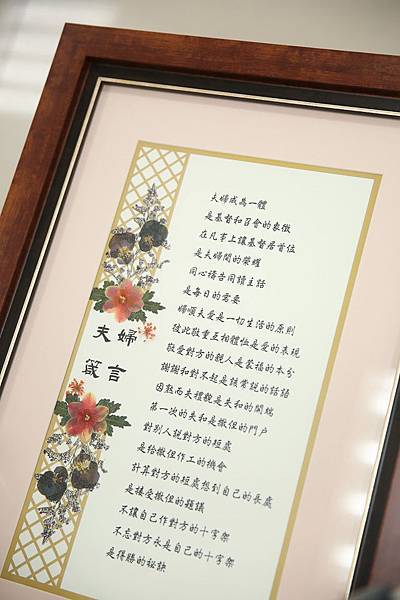 夫婦
箴言
夫婦成為一體
是基督和召會的表徵
在凡事上讓基督居首位
是夫婦間的榮耀
同心禱告同讀主話
是每日的需要
婦順夫愛是一切生活的原則
彼此敬重互相體恤是愛的表現
敬愛對方的親人是蒙福的本分
謝謝和對不起是該常說的話語
因熟而失禮貌是失和的開端
第一次的失和是撒但的門戶
對別人說對方的短處
是給撒但作工的機會
計算對方的短處想到自己的長處
是接受撒但的題議
不讓自己作對方的十字架
不忘對方永是自己的十字架
是得勝的祕訣